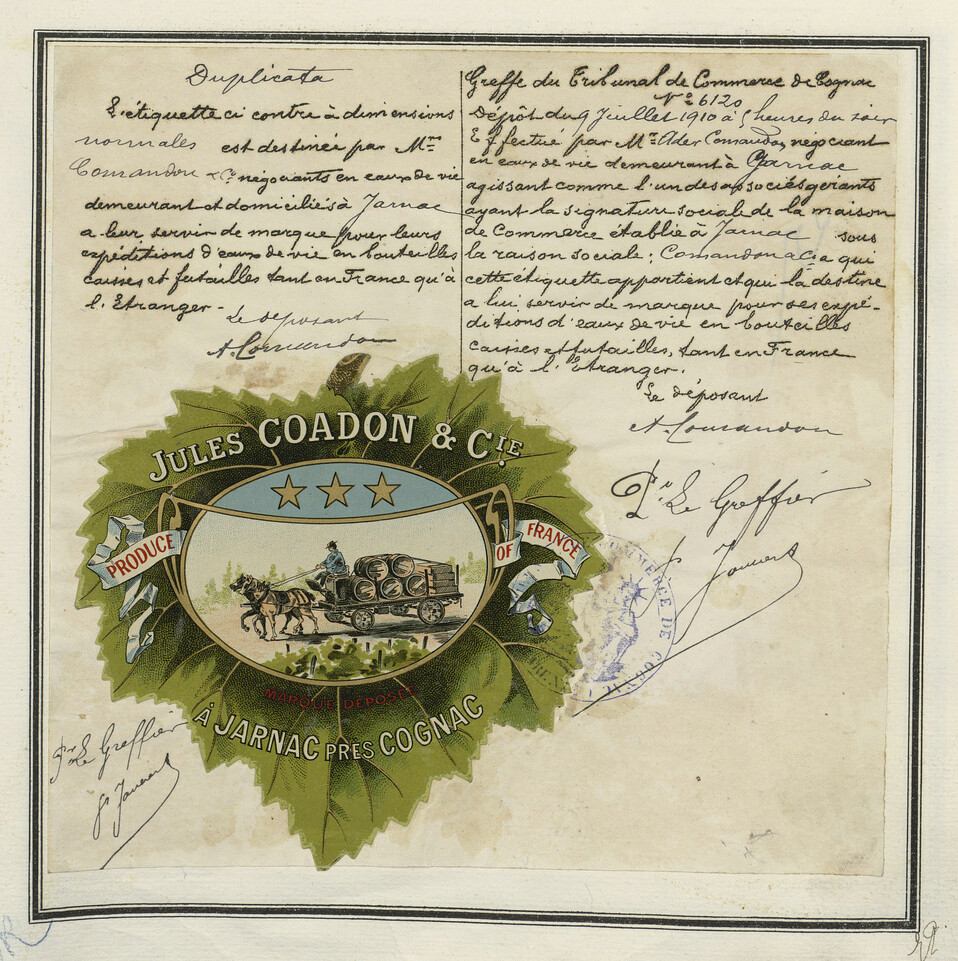 Duplicata
L'étiquette ci contre à dimensions
normales est destinée par Mrs
Comandon & Co négociants en eaux de vie
demeurant et domiciliés à Jarnac
a leur servir de marque pour leurs
expéditions d'eaux de vie en bouteilles
caisses et futailles tant en France qu'à
l'Etranger -
Le déposant
A. Comandon
Greffe du Tribunal de Commerce de Cognac
No 6120
Dépôt du 9 Juillet 1910 à 5 heures du soir
Effectué par Mr Ader Comandon, négociant
en eaux de vie demeurant à Jarnac
agissant comme l'un des associés gérants
ayant la signature sociale de la maison
de Commerce établie à Jarnac sous
la raison sociale; Comandon & Cie a qui
cette étiquette appartient et qui la destine
a lui servir de marque pour ses expé-
ditions d'eaux de vie en bouteilles
caisses et futailles, tant en France
qu'à l'Etranger.
Le déposant
A. Comandon
Pr Le Greffier
JULES COADON & CIE.
PRODUCE OF FRANCE
MARQUE DEPOSÉE
À JARNAC PRÈS COGNAC
COMMERCE DE COGNAC
Pr Le Greffier